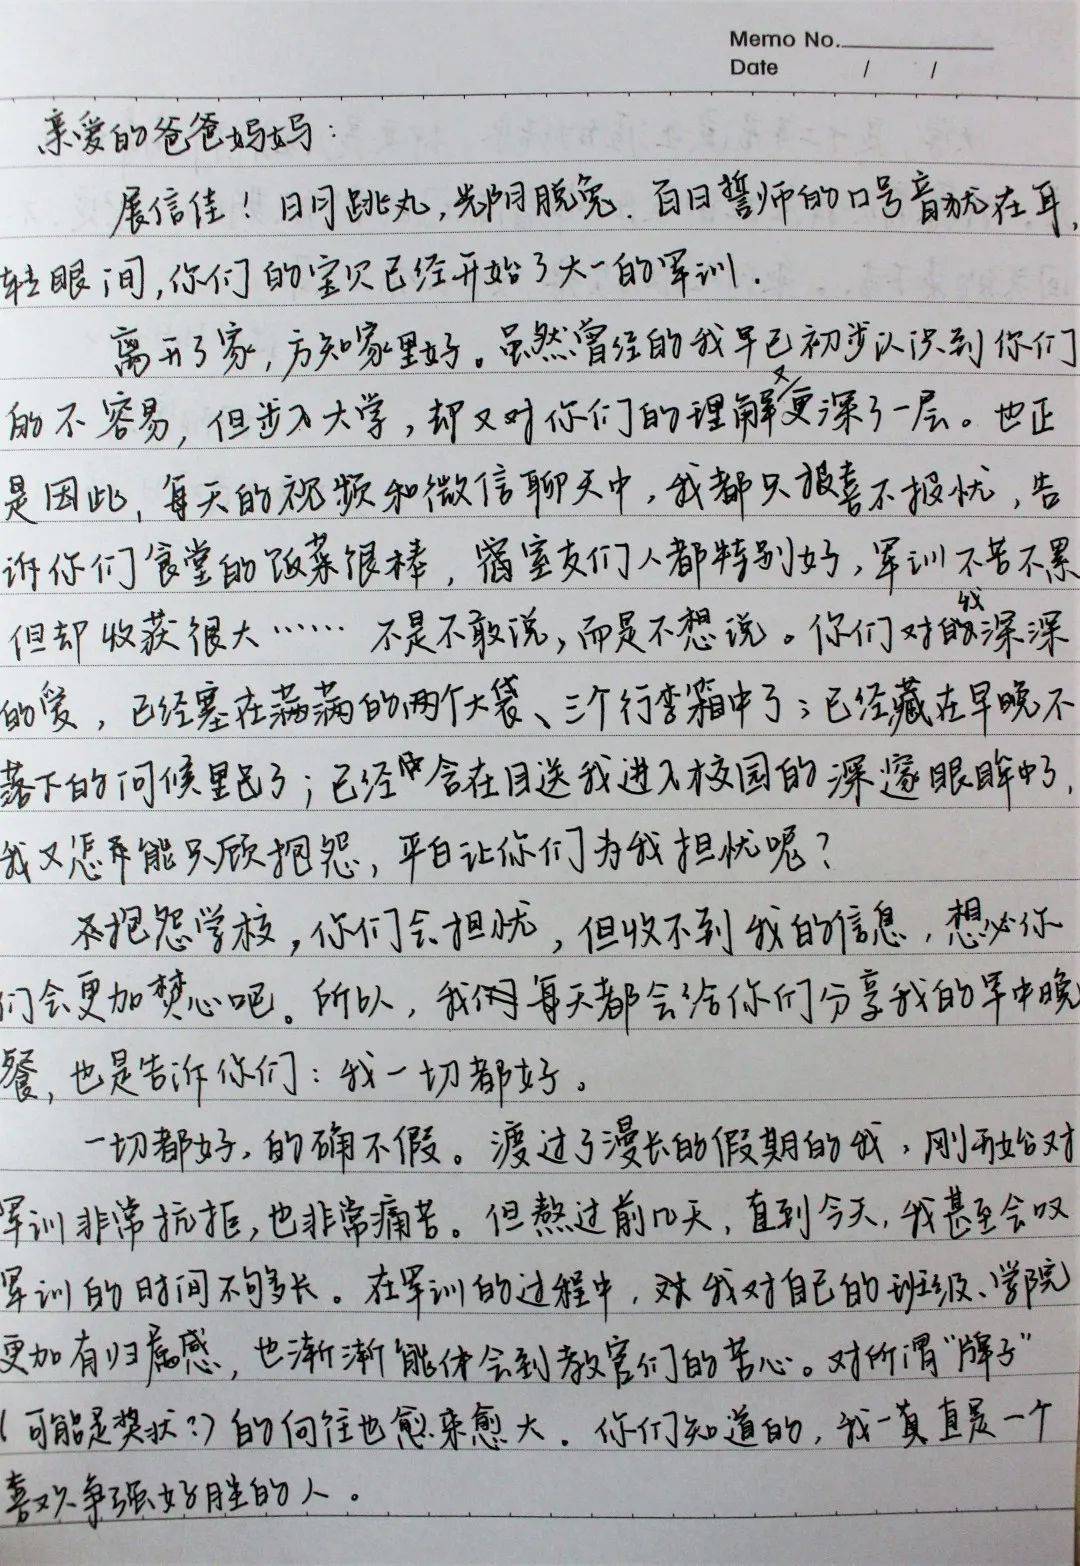 Memo No.
Date / /
亲爱的爸爸妈妈：
展信佳！日月跳丸，光阴脱兔．百日誓师的口号音犹在耳，
转眼间，你们的宝贝已经开始了大一的军训．
离开了家，方知家里好。虽然曾经的我早已初步认识到你们
的不容易，但步入大学，却又对你们的理解又更深了一层。也正
是因此，每天的视频和微信聊天中，我都只报喜不报忧，告
诉你们食堂的饭菜很棒，宿室友们人都特别好，军训不苦不累
但却收获很大…… 不是不敢说，而是不想说。你们对我深深
的爱，已经塞在满满的两个大袋、三个行李箱中了；已经藏在早晚不
落下的问候里了；已经含在目送我进入校园的深邃眼眸中了，
我又怎能只顾抱怨，平白让你们为我担忧呢？
抱怨学校，你们会担忧，但收不到我的信息，想必你
们会更加焚心吧。所以，我每天都会给你们分享我的军中晚
餐，也是告诉你们：我一切都好。
一切都好，的确不假。渡过了漫长的假期的我，刚开始对
军训非常抗拒，也非常痛苦。但熬过前几天，直到今天，我甚至会叹
军训的时间不够长。在军训的过程中，我对自己的班级、学院
更加有归属感，也渐渐能体会到教官们的苦心。对所谓“牌子”
（可能是奖状？）的向往也愈来愈大．你们知道的，我一真直是一个
喜欢争强好胜的人。